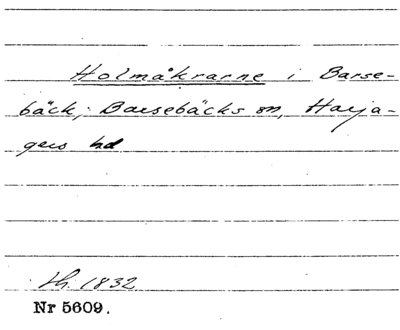 Holmåkrarne i Barse-
bäck; Barsebäcks sn, Harja-
gers hd
1832
Nr 5609.